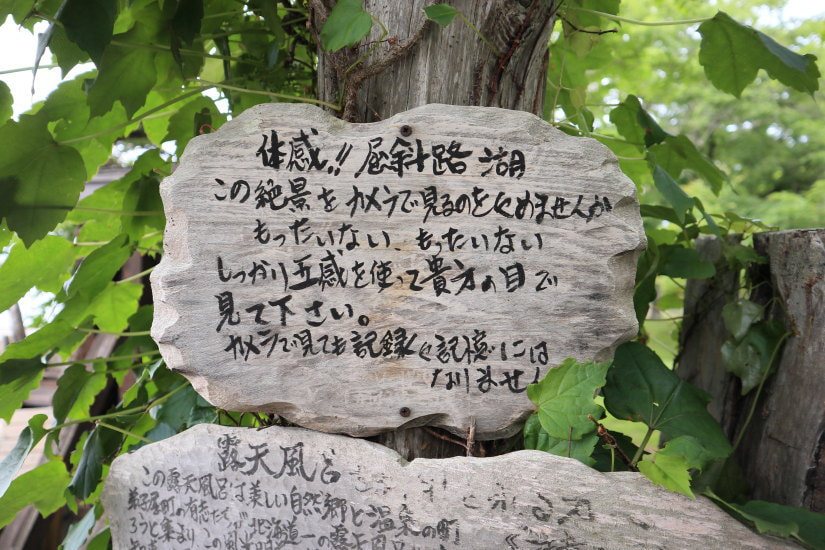 体感!! 屈斜路湖
この絶景をカメラで見るのをやめませんか
もったいない もったいない
しっかり五感を使って貴方の目で
見て下さい。
カメラで見ても記録く<記憶>には
なりません!
露天風呂
この露天風呂は美しい自然郷と温泉の町
弟子屈町の有志たち
ろうと集まり 北海道一の露天